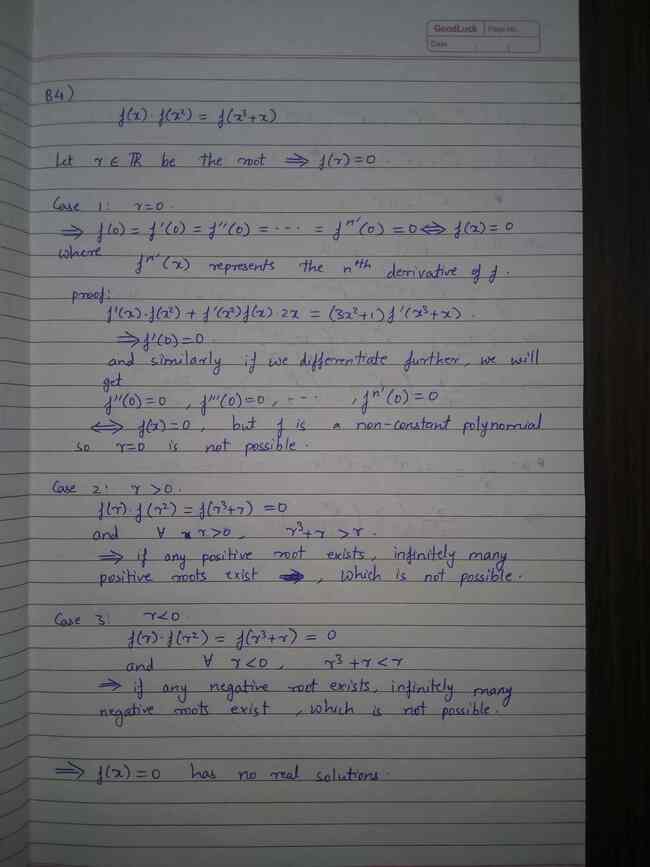 GoodLuck Page No.
Date
B4)
f(x)·f(x²) = f(x³+x)
Let r ∈ ℝ be the root ⟹ f(r)=0
Case 1: r=0.
⟹ f(0) = f'(0) = f''(0) = ---- = fⁿ'(0) = 0 ⟺ f(x)=0
where
fⁿ'(x) represents the nᵗʰ derivative of f.
proof:
f'(x)·f(x²) + f'(x²)f(x)·2x = (3x²+1)f'(x³+x).
⟹ f'(0)=0
and similarly if we differentiate further, we will
get
f''(0)=0 , f'''(0)=0, --- , fⁿ'(0)=0
⟺ f(x)=0 , but f is a non-constant polynomial
so r=0 is not possible.
Case 2: r >0.
f(r)·f(r²) = f(r³+r) =0
and ∀ r>0, r³+r >r.
⟹ if any positive root exists, infinitely many
positive roots exist , which is not possible.
Case 3: r<0.
f(r)·f(r²) = f(r³+r) = 0
and ∀ r<0, r³+r<r
⟹ if any negative root exists, infinitely many
negative roots exist , which is not possible.
⟹ f(x)=0 has no real solutions.